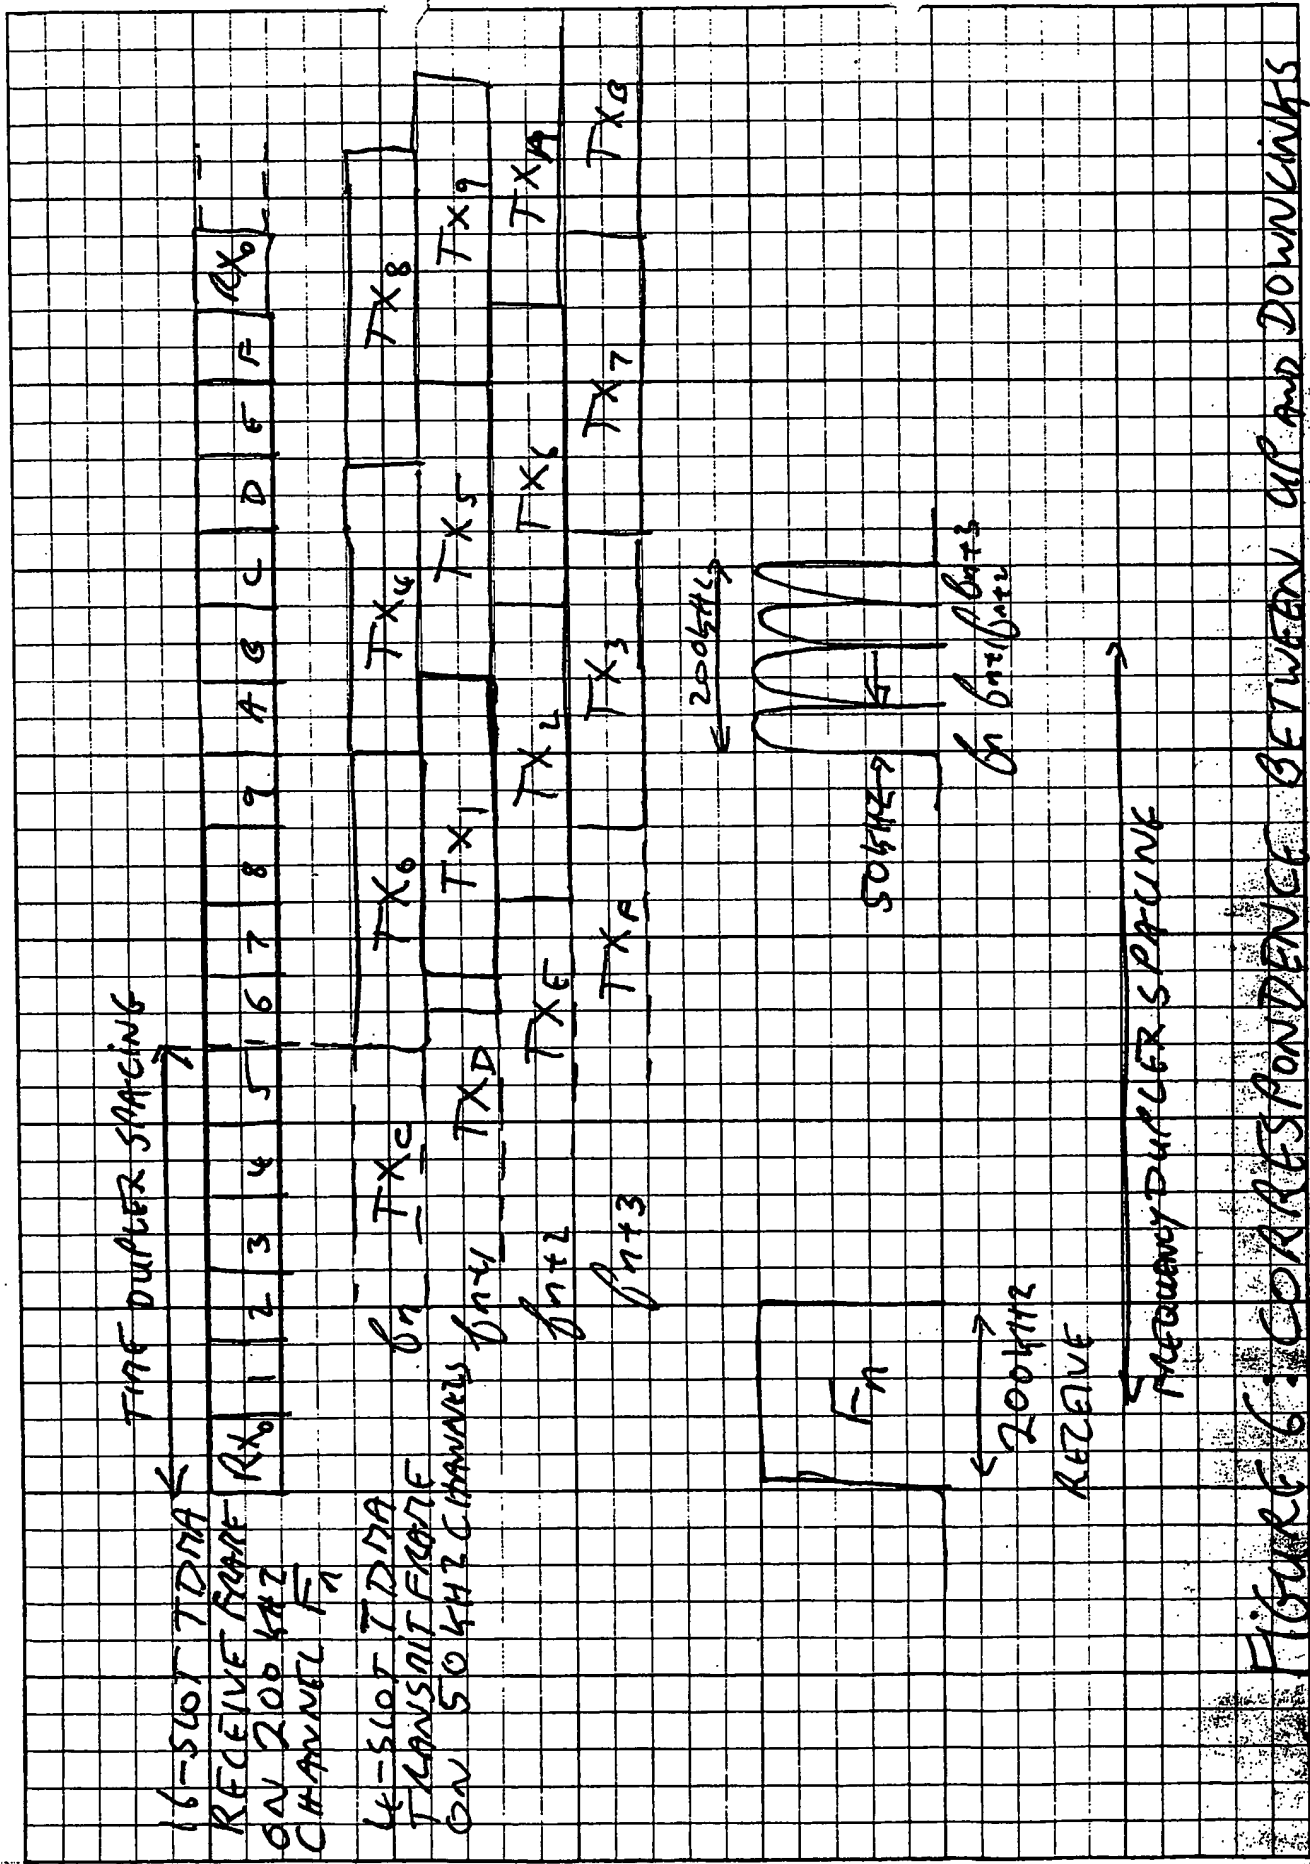 TIME DUPLEX SPACING
16-SLOT TDMA
RECEIVE FRAME
ON 200 KHZ
CHANNEL Fn
RX0 1 2 3 4 5 6 7 8 9 A B C D E F RX0
4-SLOT TDMA
TRANSMIT FRAME
ON 50 KHZ CHANNELS
fn TXC TX0 TX4 TX8
fn+1 TXD TX1 TX5 TX9
fn+2 TXE TX2 TX6 TXA
fn+3 TXF TX3 TX7 TXB
200KHZ
Fn
50KHZ
fn fn+1 fn+2 fn+3
200KHZ
RECEIVE
FREQUENCY DUPLEX SPACING
FIGURE 6: CORRESPONDENCE BETWEEN UP AND DOWNLINKS